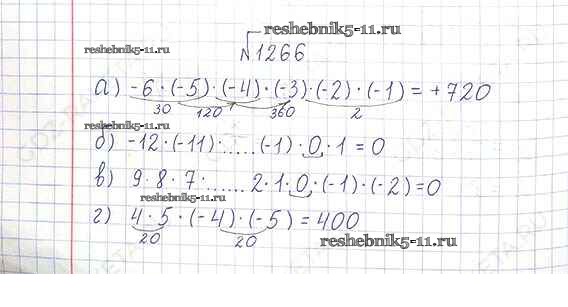 reshebnik5-11.ru
reshebnik5-11.ru
№1266
а) -6·(-5)·(-4)·(-3)·(-2)·(-1) = +720
30 120 360 2
reshebnik5-11.ru
б) -12·(-11)·.....(-1)·0·1=0
в) 9·8·7·......2·1·0·(-1)·(-2)=0
reshebnik5-11.ru
г) 4·5·(-4)·(-5)=400
20 20
reshebnik5-11.ru